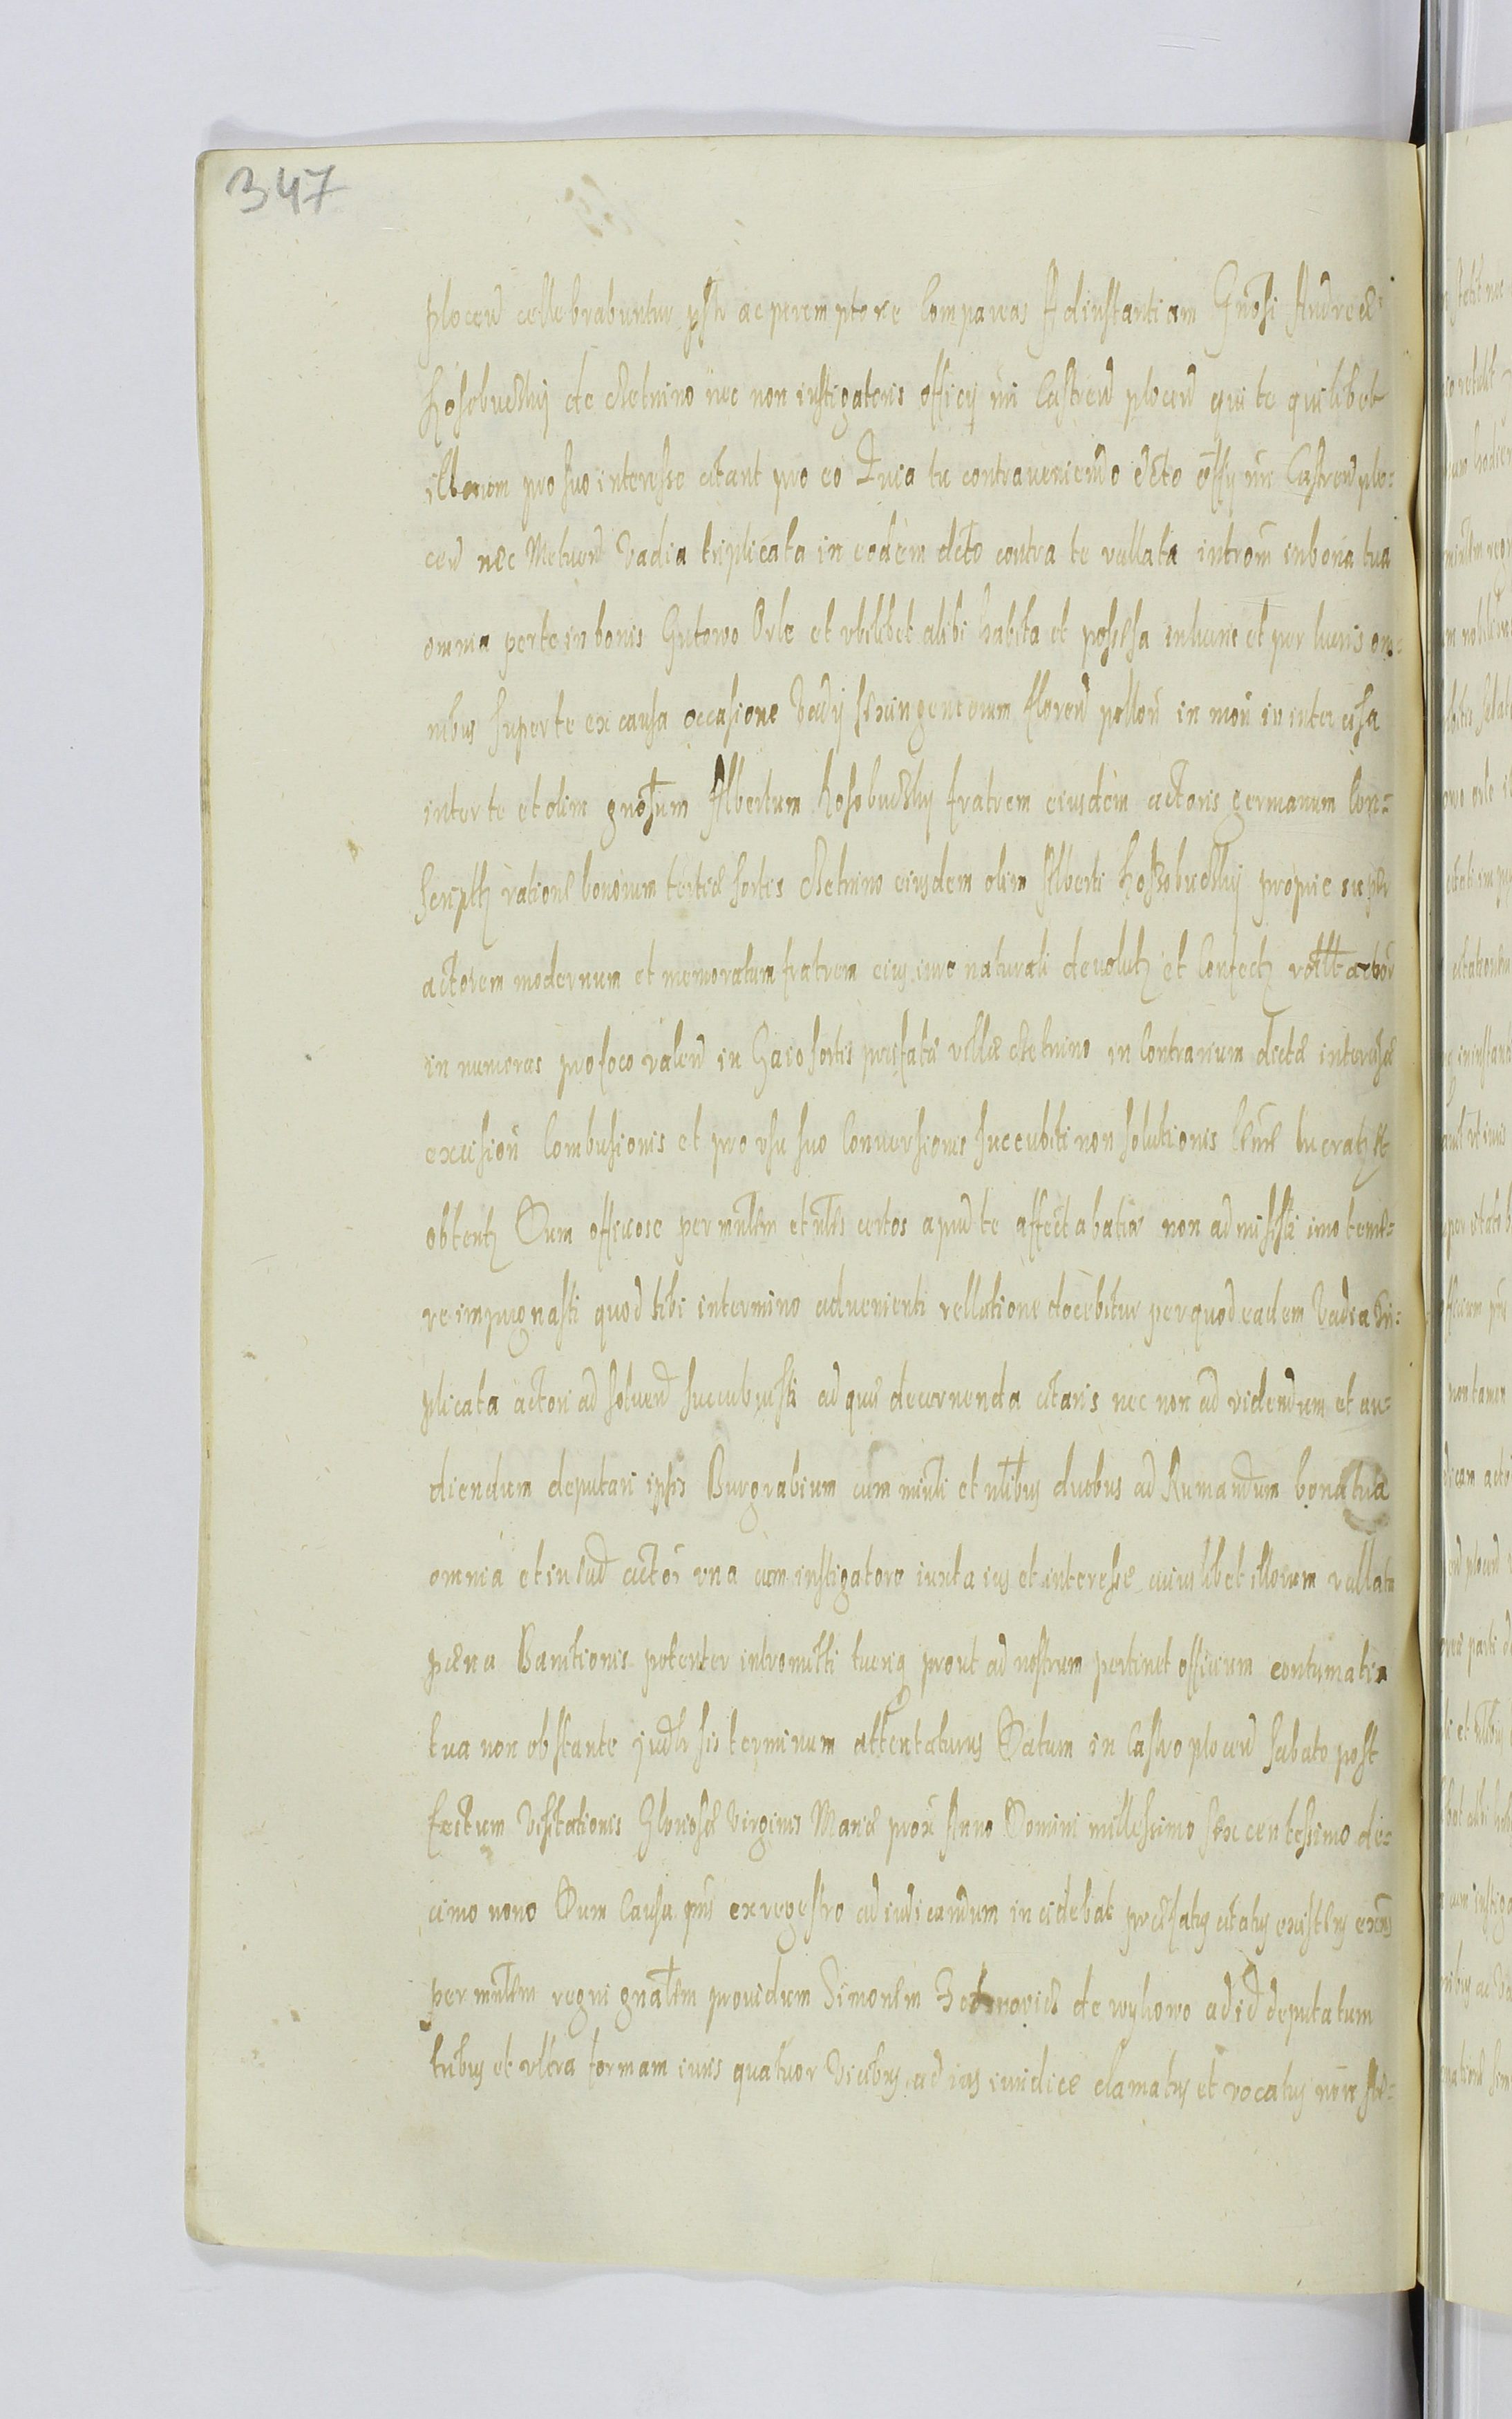 347
plocen celebrabuntur pstr ac peremptorie Compareas Ad instantiam Gnosi Andreæ
Kosobudzky de Setnino nec non instigatoris officij nri Castren plocen qui te quilibet
illorum pro suo interesse citant pro eo Quia tu contraueniendo dcto offy nri Castren plo-
cen nec Metuen Vadia triplicata in eodem dcto contra te vallata introm in bona tua
omnia per te in bonis Gutowo Orle et vbilibet alibi habita et possessa
nibus super te ex causa occasione Vadij sexingentorum floren pollon in mon in intercisa
inter te et olim gnosum Albertum Kosobudzky fratrem eiusdem actoris germanum Con-
script ratione bonorum tertiæ sortis Setnino eiusdem olim Alberti Kossobudzky proprie super
actorem modernum et memoratum fratrem eius iure naturali deuolut et Contect
in numeras pro foco valen in Gaio sortis præfatæ villæ Setnino in Contrarium dictæ intercisæ
excision Combusionis et pro vsu suo Conuersionis succubiti non solutionis lucrat et
obtent Dum officiose per mnlem et nles certos apud te affectabatur non admisisti imo teme-
re impugnasti quod tibi in termino aduenienti rellatione docebitur per quod eadem Vadia tri-
plicata actori ad soluen succubuisti ad quæ decernenda citaris nec non ad videndum et au-
diendum deputari ipsis Burgrabium cum minli et nlibus duobus ad Rumandum bona tua
omnia et in eisd actor vna cum instigatore iuxta ius et interesse cuiuslibet illorum vallata
pæna Banitionis potenter intromitti tueriq prout ad nostrum pertinet officium contumatia
tua non obstante judlr sis terminum attentaturus Datum in Castro plocen Sabato post
festum Visitationis Gloriosæ Virginis Mariæ prox Anno Domini millessimo sexcentessimo de-
cimo nono Dum Causa pns ex regestro ad iudicandum incidebat præfatus citatus
per mnlem regni gnalem prouidum Simonem de wyhowo ad id deputatum
tribus et vltra formam iuris quatuor Vicibus ad ius iuridice clamatus et vocatus non ste-